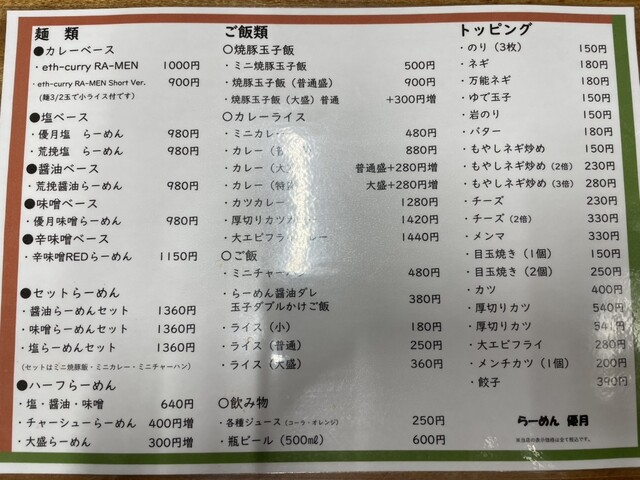 麺 類
●カレーベース
・eth-curry RA-MEN 1000円
・eth-curry RA-MEN Short Ver. 900円
(麺3/2玉で小ライス付です)
●塩ベース
・優月塩 らーめん 980円
・荒挽塩 らーめん 980円
●醤油ベース
・荒挽醤油らーめん 980円
●味噌ベース
・優月味噌らーめん 980円
●辛味噌ベース
・辛味噌REDらーめん 1150円
●セットらーめん
・醤油らーめんセット 1360円
・味噌らーめんセット 1360円
・塩らーめんセット 1360円
(セットはミニ焼豚飯・ミニカレー・ミニチャーハン)
●ハーフらーめん
・塩・醤油・味噌 640円
・チャーシューらーめん 400円増
・大盛らーめん 300円増
ご飯類
〇焼豚玉子飯
・ミニ焼豚玉子飯 500円
・焼豚玉子飯(普通盛) 900円
・焼豚玉子飯(大盛)普通 +300円増
〇カレーライス
・ミニカレー 480円
・カレー 880円
・カレー(大 普通盛+280円増
・カレー(特 大盛+280円増
・カツカレー 1280円
・厚切りカツカ 1420円
・大エビフライ レー 1440円
〇ご飯
・ミニチャーハン 480円
・らーめん醤油ダレ
玉子ダブルかけご飯 380円
・ライス(小) 180円
・ライス(普通) 250円
・ライス(大盛) 360円
〇飲み物
・各種ジュース(コーラ・オレンジ) 250円
・瓶ビール(500㎖) 600円
トッピング
・のり(3枚) 150円
・ネギ 180円
・万能ネギ 180円
・ゆで玉子 150円
・岩のり 150円
・バター 180円
・もやしネギ炒め 150円
・もやしネギ炒め(2倍) 230円
・もやしネギ炒め(3倍) 280円
・チーズ 230円
・チーズ(2倍) 330円
・メンマ 330円
・目玉焼き(1個) 150円
・目玉焼き(2個) 250円
・カツ 400円
・厚切りカツ 540円
・厚切りカツ 541円
・大エビフライ 280円
・メンチカツ(1個) 200円
・餃子 390円
らーめん 優月